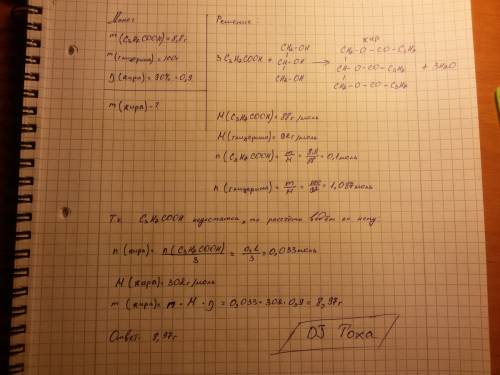 Дано:
m(C₃H₇COOH)=8,8г
m(глицерина)=100г
η(жира)=90%=0,9
m(жира)-?
Решение:
жир
3C₃H₇COOH + CH₂-OH CH₂-O-CO-C₃H₇
CH-OH → CH-O-CO-C₃H₇ + 3H₂O
CH₂-OH CH₂-O-CO-C₃H₇
M(C₃H₇COOH)=88г/моль
M(глицерина)=92г/моль
n(C₃H₇COOH)=m/M=8,8/88=0,1моль
n(глицерина)=m/M=100/92=1,087моль
Т.к. C₃H₇COOH недостаток, то рассчёты ведём по нему:
n(жира)=n(C₃H₇COOH)/3=0,1/3=0,033моль
M(жира)=302г/моль
m(жира)=n·M·η=0,033·302·0,9=8,97г
Ответ: 8,97г
DJ Тоха